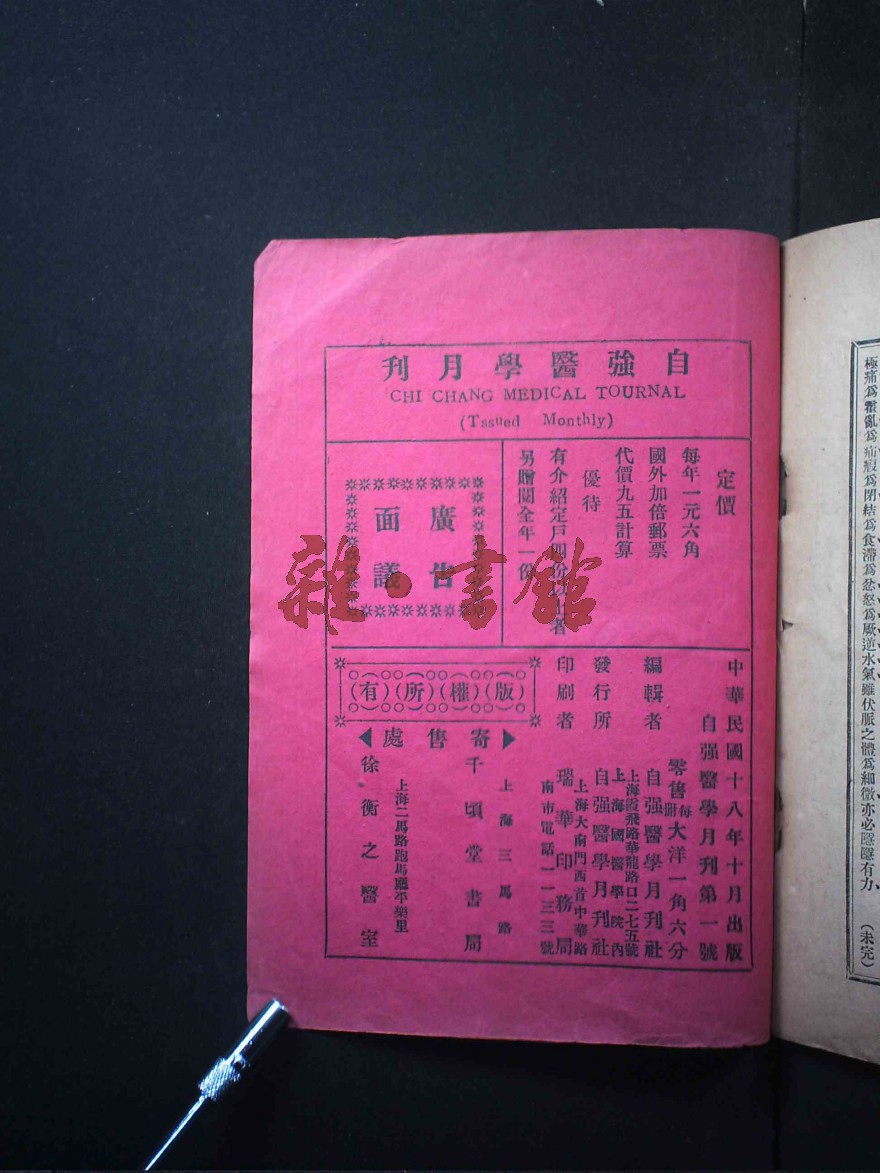 自強醫學月刊
CHI CHANG MEDICAL TOURNAL
(Tssued Monthly)
定價
每年一元六角
國外加倍郵票
代價九五計算
優待
有介紹定戶四份以上者
另贈閱全年一份
廣告
面議
中華民國十八年十月出版
自强醫學月刊第一號
零售每冊大洋一角六分
編輯者 自强醫學月刊社
上海霞飛路華龍路口二七五號
上海國醫學院內
發行所 自强醫學月刊社
上海大南門西首中華路
印刷者 瑞華印務局
南市電話一一三三號
(版)(權)(所)(有)
寄售處
上海三馬路
千頃堂書局
上海二馬路跑馬廳平樂里
徐衡之醫室
雜·書館
極痛爲霍亂爲疝瘕爲閉結爲食滯爲忿怒爲厥逆水氣雖伏脈之體爲細微亦必隱隱有力、
(未完)